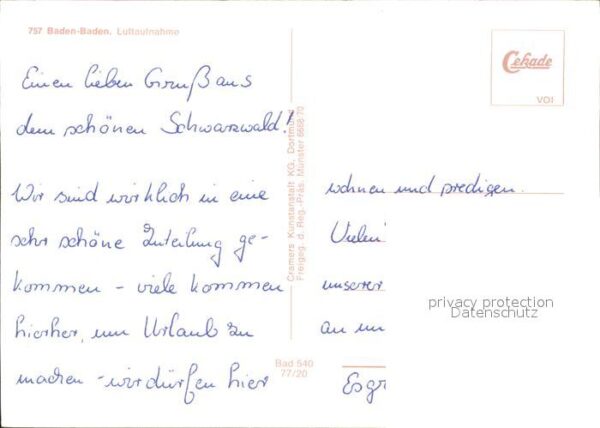 757 Baden-Baden. Luftaufnahme
Cekade
VOI
Einen lieben Gruß aus
dem schönen Schwarzwald!
Wir sind wirklich in eine
sehr schöne Zuteilung ge-
kommen - viele kommen
hierher, um Urlaub zu
machen - wir dürfen hier
Cramers Kunstanstalt KG, Dortmund
Freigeg. d. Reg.-Präs. Münster 6668/70
Bad 540
77/20
wohnen und predigen.
Vielen
unserer
an un
Esgr
privacy protection
Datenschutz